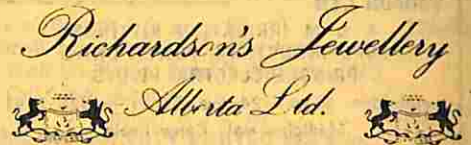 Richardson's Jewellery
Alberta Ltd.